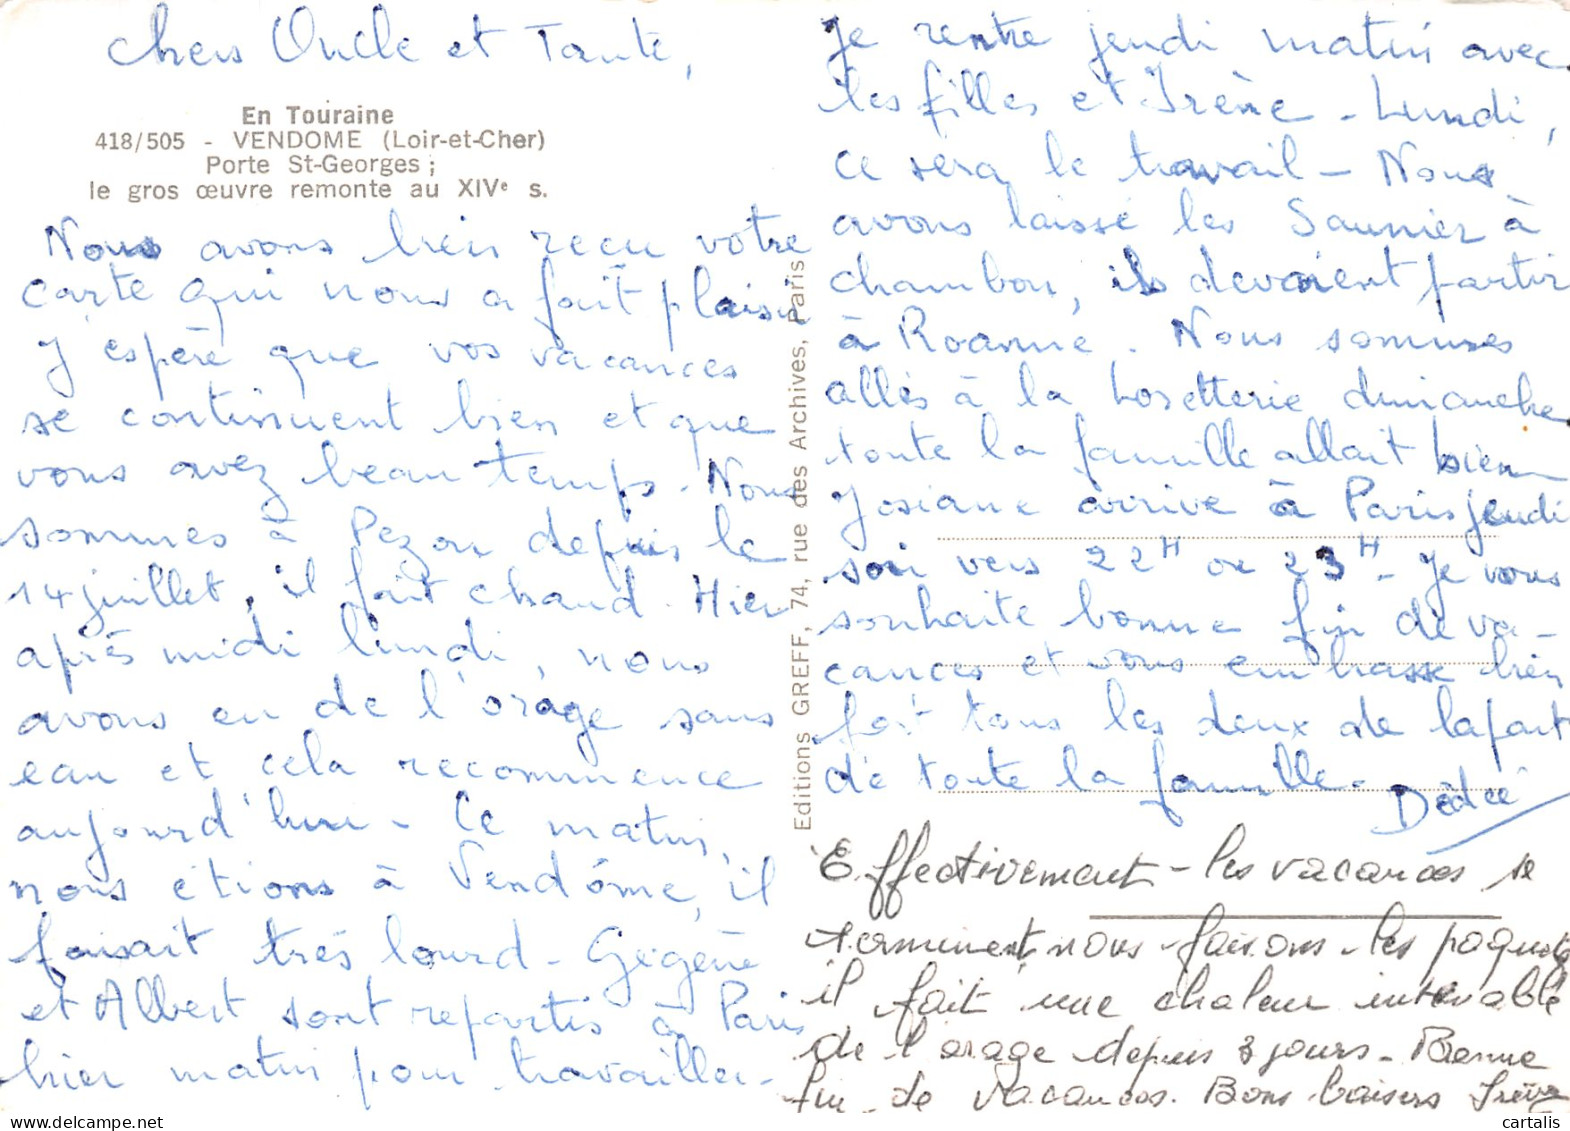 Chers Oncle et Tante,
En Touraine
418/505 - VENDOME (Loir-et-Cher)
Porte St-Georges ;
le gros œuvre remonte au XIVe s.
Nous avons bien reçu votre
carte qui nous a fait plaisir
J'espère que vos vacances
se continuent bien et que
vous avez beau temps. Nous
sommes à Pezou depuis le
14 juillet, il fait chaud. Hier
après midi lundi, nous
avons eu de l'orage sans
eau et cela recommence
aujourd'hui - Ce matin,
nous étions à Vendôme, il
faisait très lourd - Gégène
et Albert sont repartis à Paris
hier matin pour travailler -
Editions GREFF, 74, rue des Archives, Paris
Je rentre jeudi matin avec
les filles et Irène - Lundi,
ce sera le travail - Nous
avons laissé les Saunier à
chambon, ils devaient partir
à Roanne. Nous sommes
allés à la Losetterie dimanche
toute la famille allait bien
Josiane arrive à Paris jeudi
soir vers 22H ou 23H - Je vous
souhaite bonne fin de va-
cances et vous embrasse bien
fort tous les deux de la part
de toute la famille.
Dédée
Effectivement - les vacances se
terminent, nous faisons les paquets
il fait une chaleur intenable
de l'orage depuis 3 jours - Bonne
fin de vacances. Bons baisers Irène
cartalis